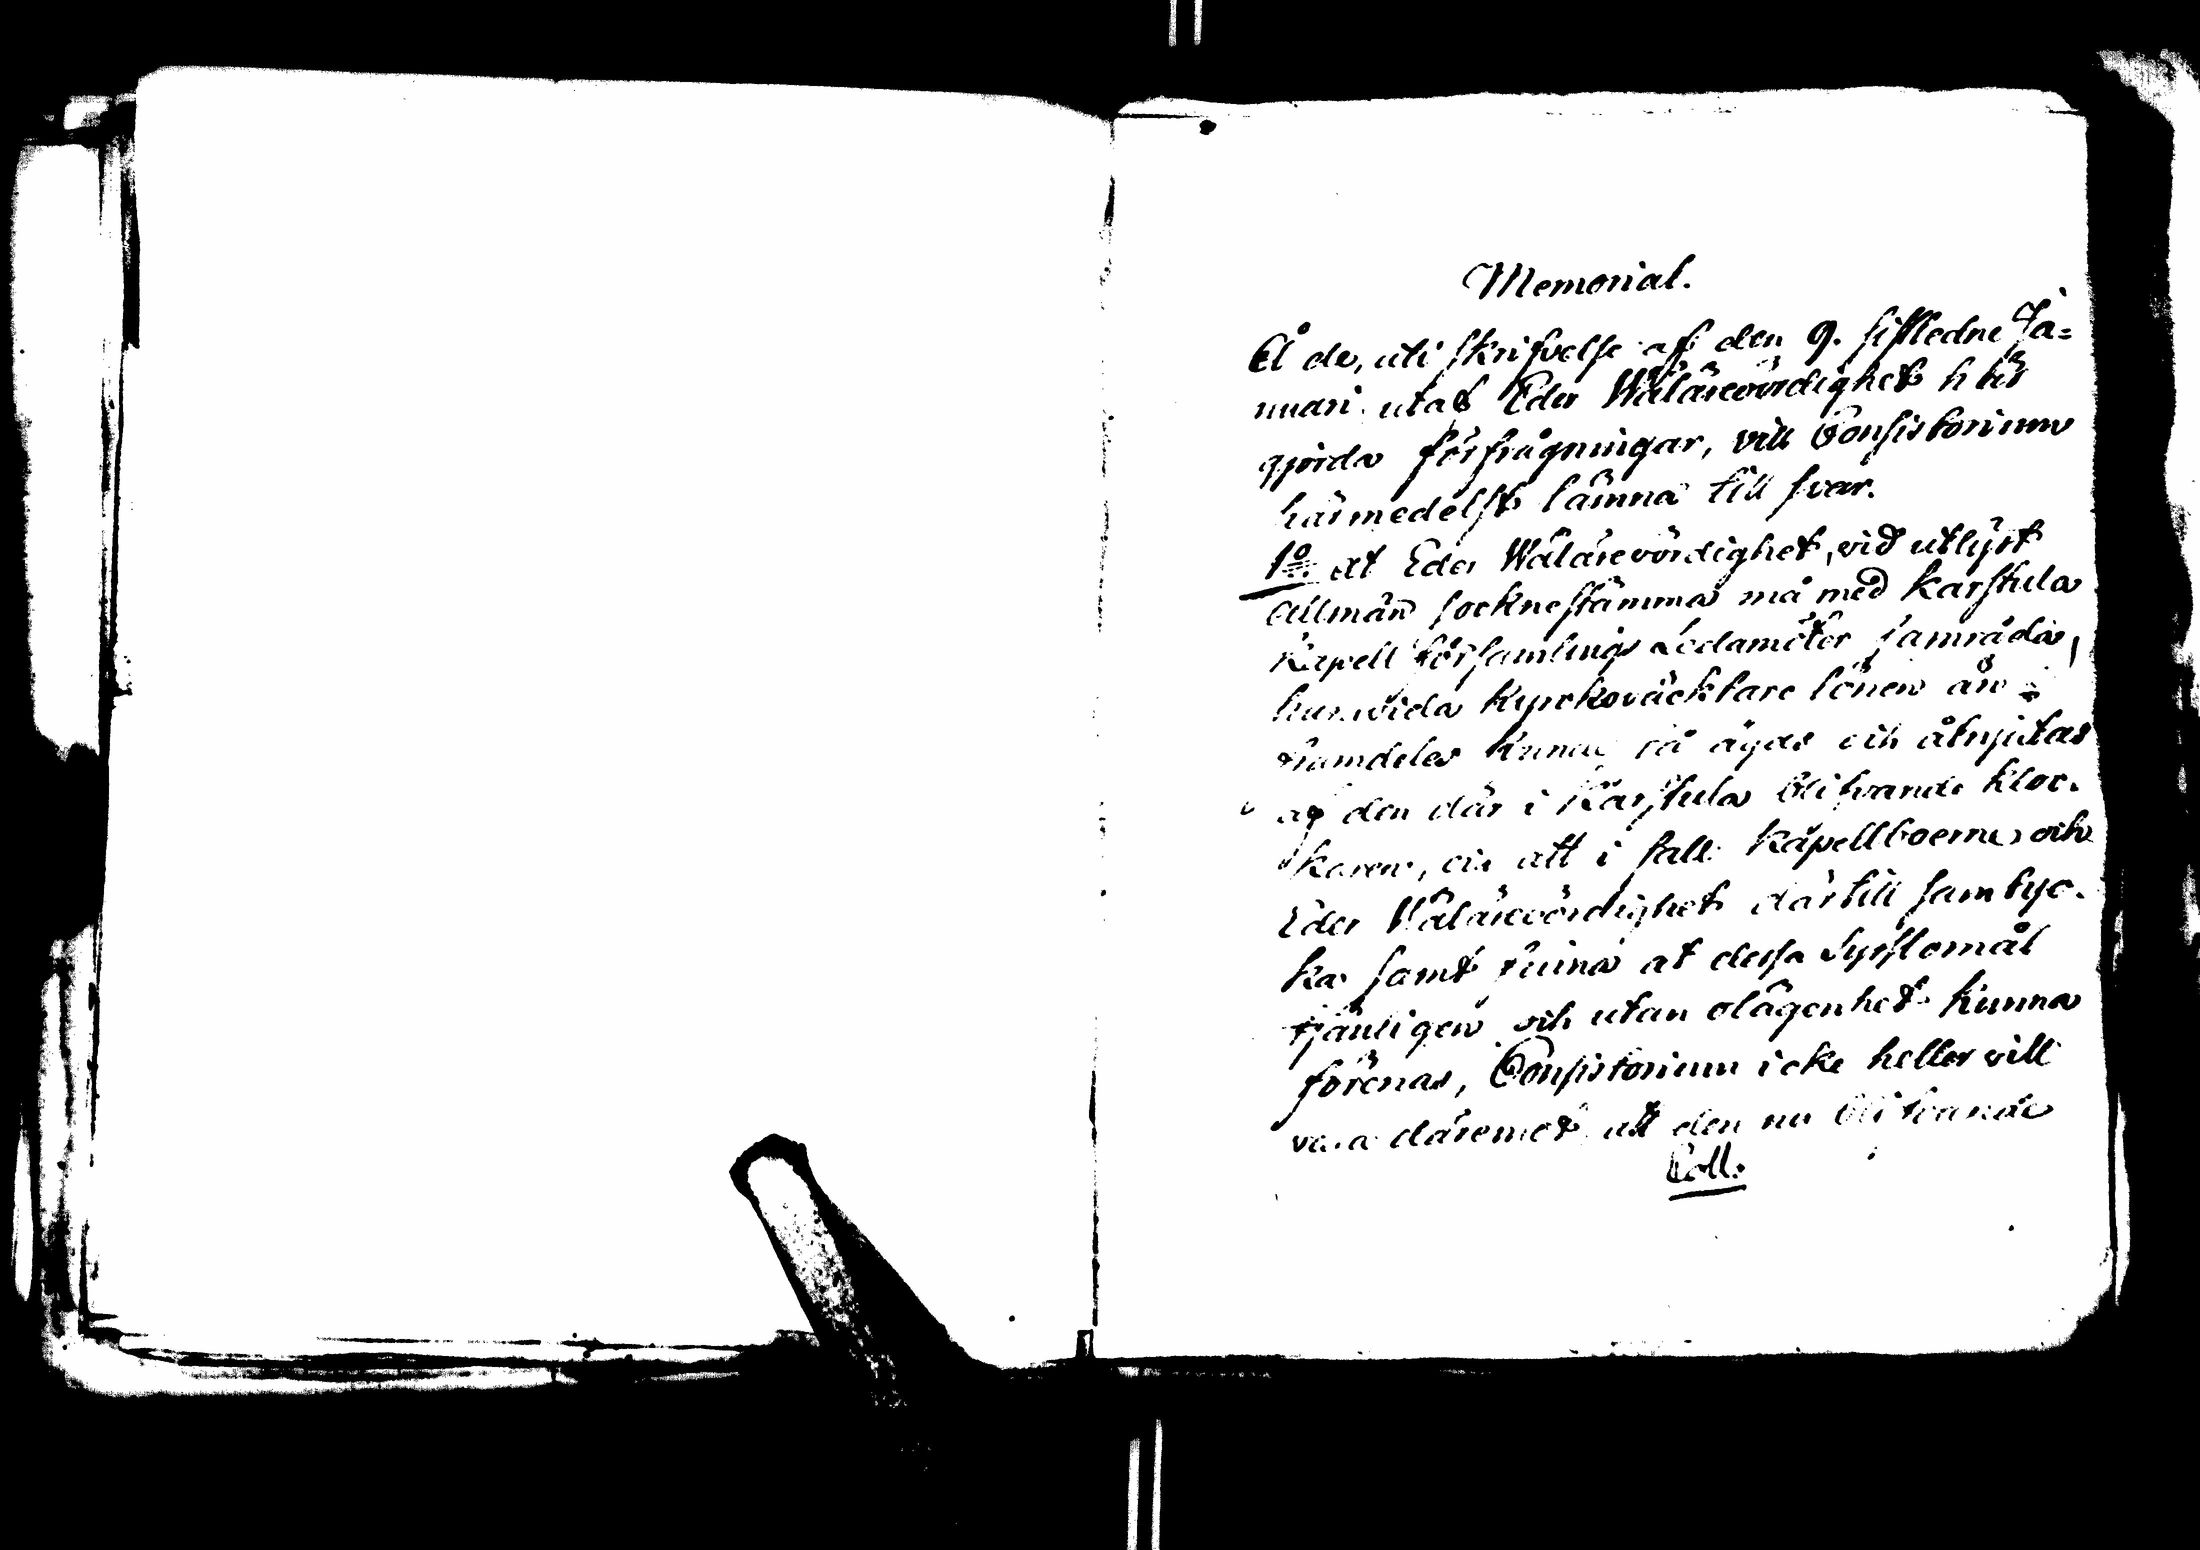 Memorial.
Å de, uti skrifvelse af den 9. sistledne Ja=
nuari utaf Eder Wälärevördighet här
gjorda förfrågningar, vill Consistorium
härmedelst lämna till svar.
1o. at Eder Wälärevördighet, vid utlyst
allmän socknestämma må med Karstula
Kapell församlings Ledamöter samråda,
huruvida kyrkoväcktare lönen än=
framdeles kunne få ägas och åtnjutas
af den där i Karstula blifvande kloc-
karen, och att i fall Kapellboerne och
Eder Wälärevördighet därtill samtyc-
ka samt finna at dessa Sysslomål
tjänligen och utan olägenhet kunna
förenas, Consistorium icke heller vill
vara däremot att den nu blifvande
Coll: